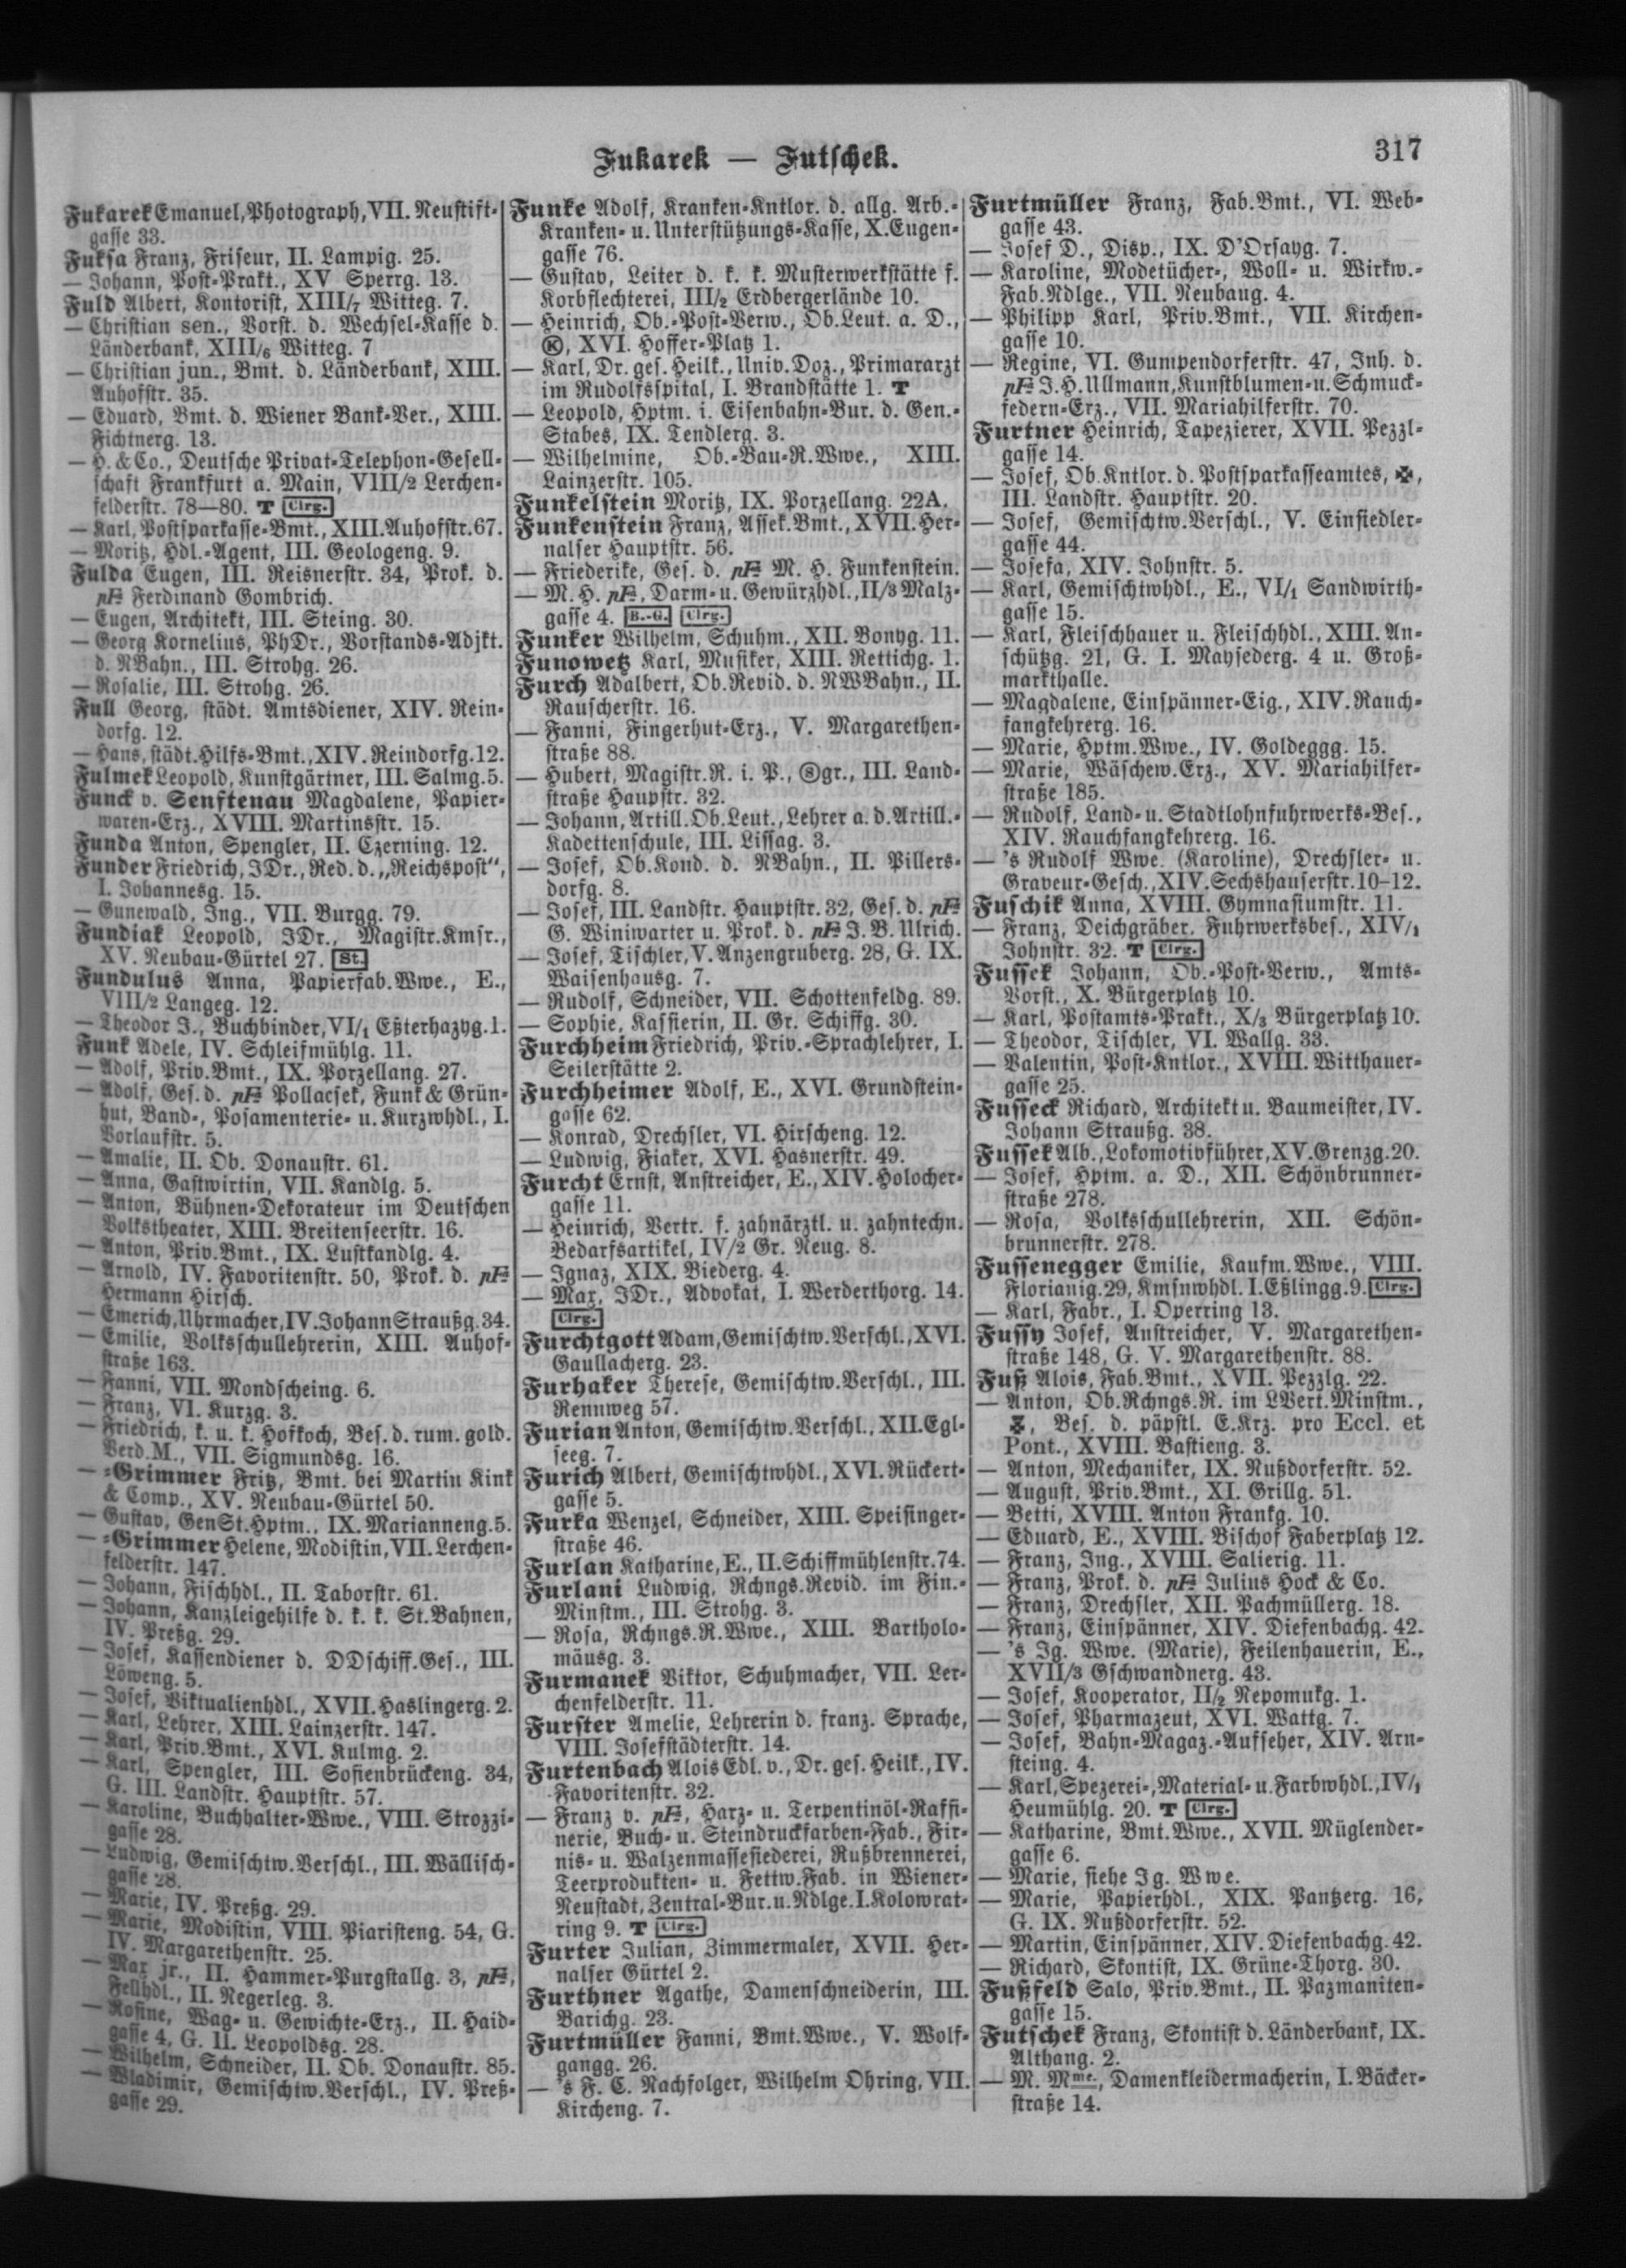 Fukarek — Futschek.
317
Fukarek Emanuel, Photograph, VII. Neustift-
gasse 33.
Fuksa Franz, Friseur, II. Lampig. 25.
— Johann, Post-Prakt., XV Sperrg. 13.
Fuld Albert, Kontorist, XIII/7 Witteg. 7.
— Christian sen., Vorst. d. Wechsel-Kasse d.
Länderbank, XIII/6 Witteg. 7
— Christian jun., Bmt. d. Länderbank, XIII.
Auhofstr. 35.
— Eduard, Bmt. d. Wiener Bank-Ver., XIII.
Fichtnerg. 13.
— H. & Co., Deutsche Privat-Telephon-Gesell-
schaft Frankfurt a. Main, VIII/2 Lerchen-
felderstr. 78—80. T Clrg.
— Karl, Postsparkasse-Bmt., XIII. Auhofstr. 67.
— Moritz, Hdl.-Agent, III. Geologeng. 9.
Fulda Eugen, III. Reisnerstr. 34, Prok. d.
pFa Ferdinand Gombrich.
— Eugen, Architekt, III. Steing. 30.
— Georg Kornelius, PhDr., Vorstands-Adjkt.
d. NBahn., III. Strohg. 26.
— Rosalie, III. Strohg. 26.
Full Georg, städt. Amtsdiener, XIV. Rein-
dorfg. 12.
— Hans, städt. Hilfs-Bmt., XIV. Reindorfg. 12.
Fulmek Leopold, Kunstgärtner, III. Salmg. 5.
Funck v. Senftenau Magdalene, Papier-
waren-Erz., XVIII. Martinsstr. 15.
Funda Anton, Spengler, II. Czerning. 12.
Funder Friedrich, JDr., Red. d. „Reichspost“,
I. Johannesg. 15.
— Gunewald, Ing., VII. Burgg. 79.
Fundiak Leopold, JDr., Magistr.Kmsr.,
XV. Neubau-Gürtel 27. St.
Fundulus Anna, Papierfab.Wwe., E.,
VIII/2 Langeg. 12.
— Theodor J., Buchbinder, VI/1 Eßterhazyg. 1.
Funk Adele, IV. Schleifmühlg. 11.
— Adolf, Priv.Bmt., IX. Porzellang. 27.
— Adolf, Ges. d. pFa Pollacsek, Funk & Grün-
hut, Band-, Posamenterie- u. Kurzwhdl., I.
Vorlaufstr. 5.
— Amalie, II. Ob. Donaustr. 61.
— Anna, Gastwirtin, VII. Kandlg. 5.
— Anton, Bühnen-Dekorateur im Deutschen
Volkstheater, XIII. Breitenseerstr. 16.
— Anton, Priv.Bmt., IX. Lustkandlg. 4.
— Arnold, IV. Favoritenstr. 50, Prok. d. pFa
Hermann Hirsch.
— Emerich, Uhrmacher, IV. Johann Straußg. 34.
— Emilie, Volksschullehrerin, XIII. Auhof-
straße 163.
— Fanni, VII. Mondscheing. 6.
— Franz, VI. Kurzg. 3.
— Friedrich, k. u. k. Hofkoch, Bes. d. rum. gold.
Verd.M., VII. Sigmundsg. 16.
— =Grimmer Fritz, Bmt. bei Martin Kink
& Comp., XV. Neubau-Gürtel 50.
— Gustav, GenSt.Hptm., IX. Marianneng. 5.
— =Grimmer Helene, Modistin, VII. Lerchen-
felderstr. 147.
— Johann, Fischhdl., II. Taborstr. 61.
— Johann, Kanzleigehilfe d. k. k. St.Bahnen,
IV. Preßg. 29.
— Josef, Kassendiener d. DDschiff.Ges., III.
Löweng. 5.
— Josef, Viktualienhdl., XVII. Haslingerg. 2.
— Karl, Lehrer, XIII. Lainzerstr. 147.
— Karl, Priv.Bmt., XVI. Kulmg. 2.
— Karl, Spengler, III. Sofienbrückeng. 34,
G. III. Landstr. Hauptstr. 57.
— Karoline, Buchhalter-Wwe., VIII. Strozzi-
gasse 28.
— Ludwig, Gemischtw.Verschl., III. Wällisch-
gasse 28.
— Marie, IV. Preßg. 29.
— Marie, Modistin, VIII. Piaristeng. 54, G.
IV. Margarethenstr. 25.
— Max jr., II. Hammer-Purgstallg. 3, pFa,
Fellhdl., II. Negerleg. 3.
— Rosine, Wag- u. Gewichte-Erz., II. Haid-
gasse 4, G. II. Leopoldsg. 28.
— Wilhelm, Schneider, II. Ob. Donaustr. 85.
— Wladimir, Gemischtw.Verschl., IV. Preß-
gasse 29.
Funke Adolf, Kranken-Kntlor. d. allg. Arb.-
Kranken- u. Unterstützungs-Kasse, X. Eugen-
gasse 76.
— Gustav, Leiter d. k. k. Musterwerkstätte f.
Korbflechterei, III/2 Erdbergerlände 10.
— Heinrich, Ob.-Post-Verw., Ob.Leut. a. D.,
Ⓚ, XVI. Hoffer-Platz 1.
— Karl, Dr. ges. Heilk., Univ.Doz., Primararzt
im Rudolfsspital, I. Brandstätte 1. T
— Leopold, Hptm. i. Eisenbahn-Bur. d. Gen.-
Stabes, IX. Tendlerg. 3.
— Wilhelmine, Ob.-Bau-R.Wwe., XIII.
Lainzerstr. 105.
Funkelstein Moritz, IX. Porzellang. 22A.
Funkenstein Franz, Assek.Bmt., XVII. Her-
nalser Hauptstr. 56.
— Friederike, Ges. d. pFa M. H. Funkenstein.
— M. H. pFa, Darm- u. Gewürzhdl., II/3 Malz-
gasse 4. B.-G. Clrg.
Funker Wilhelm, Schuhm., XII. Bonyg. 11.
Funowetz Karl, Musiker, XIII. Rettichg. 1.
Furch Adalbert, Ob.Revid. d. NWBahn., II.
Rauscherstr. 16.
— Fanni, Fingerhut-Erz., V. Margarethen-
straße 88.
— Hubert, Magistr.R. i. P., Ⓢgr., III. Land-
straße Haupstr. 32.
— Johann, Artill.Ob.Leut., Lehrer a. d. Artill.-
Kadettenschule, III. Lissag. 3.
— Josef, Ob.Kond. d. NBahn., II. Pillers-
dorfg. 8.
— Josef, III. Landstr. Hauptstr. 32, Ges. d. pFa
G. Winiwarter u. Prok. d. pFa J. B. Ulrich.
— Josef, Tischler, V. Anzengruberg. 28, G. IX.
Waisenhausg. 7.
— Rudolf, Schneider, VII. Schottenfeldg. 89.
— Sophie, Kassierin, II. Gr. Schiffg. 30.
Furchheim Friedrich, Priv.-Sprachlehrer, I.
Seilerstätte 2.
Furchheimer Adolf, E., XVI. Grundstein-
gasse 62.
— Konrad, Drechsler, VI. Hirscheng. 12.
— Ludwig, Fiaker, XVI. Hasnerstr. 49.
Furcht Ernst, Anstreicher, E., XIV. Holocher-
gasse 11.
— Heinrich, Vertr. f. zahnärztl. u. zahntechn.
Bedarfsartikel, IV/2 Gr. Neug. 8.
— Ignaz, XIX. Biederg. 4.
— Max, JDr., Advokat, I. Werderthorg. 14.
Clrg.
Furchtgott Adam, Gemischtw.Verschl., XVI.
Gaullacherg. 23.
Furhaker Therese, Gemischtw.Verschl., III.
Rennweg 57.
Furian Anton, Gemischtw.Verschl., XII. Egl-
seeg. 7.
Furich Albert, Gemischtwhdl., XVI. Rückert-
gasse 5.
Furka Wenzel, Schneider, XIII. Speisinger-
straße 46.
Furlan Katharine, E., II. Schiffmühlenstr. 74.
Furlani Ludwig, Rchngs.Revid. im Fin.-
Minstm., III. Strohg. 3.
— Rosa, Rchngs.R.Wwe., XIII. Bartholo-
mäusg. 3.
Furmanek Viktor, Schuhmacher, VII. Ler-
chenfelderstr. 11.
Furster Amelie, Lehrerin d. franz. Sprache,
VIII. Josefstädterstr. 14.
Furtenbach Alois Edl. v., Dr. ges. Heilk., IV.
Favoritenstr. 32.
— Franz v. pFa, Harz- u. Terpentinöl-Raffi-
nerie, Buch- u. Steindruckfarben-Fab., Fir-
nis- u. Walzenmassesiederei, Rußbrennerei,
Teerprodukten- u. Fettw.Fab. in Wiener-
Neustadt, Zentral-Bur. u. Ndlge. I. Kolowrat-
ring 9. T Clrg.
Furter Julian, Zimmermaler, XVII. Her-
nalser Gürtel 2.
Furthner Agathe, Damenschneiderin, III.
Barichg. 23.
Furtmüller Fanni, Bmt.Wwe., V. Wolf-
gangg. 26.
— 's F. C. Nachfolger, Wilhelm Ohring, VII.
Kircheng. 7.
Furtmüller Franz, Fab.Bmt., VI. Web-
gasse 43.
— Josef D., Disp., IX. D'Orsayg. 7.
— Karoline, Modetücher-, Woll- u. Wirkw.-
Fab.Ndlge., VII. Neubaug. 4.
— Philipp Karl, Priv.Bmt., VII. Kirchen-
gasse 10.
— Regine, VI. Gumpendorferstr. 47, Inh. d.
pFa J. H. Ullmann, Kunstblumen- u. Schmuck-
federn-Erz., VII. Mariahilferstr. 70.
Furtner Heinrich, Tapezierer, XVII. Pezzl-
gasse 14.
— Josef, Ob.Kntlor. d. Postsparkasseamtes, ✠,
III. Landstr. Hauptstr. 20.
— Josef, Gemischtw.Verschl., V. Einsiedler-
gasse 44.
— Josefa, XIV. Johnstr. 5.
— Karl, Gemischtwhdl., E., VI/1 Sandwirth-
gasse 15.
— Karl, Fleischhauer u. Fleischhdl., XIII. An-
schützg. 21, G. I. Maysederg. 4 u. Groß-
markthalle.
— Magdalene, Einspänner-Eig., XIV. Rauch-
fangkehrerg. 16.
— Marie, Hptm.Wwe., IV. Goldeggg. 15.
— Marie, Wäschew.Erz., XV. Mariahilfer-
straße 185.
— Rudolf, Land- u. Stadtlohnfuhrwerks-Bes.,
XIV. Rauchfangkehrerg. 16.
— 's Rudolf Wwe. (Karoline), Drechsler- u.
Graveur-Gesch., XIV. Sechshauserstr. 10–12.
Fuschik Anna, XVIII. Gymnasiumstr. 11.
— Franz, Deichgräber, Fuhrwerksbes., XIV/1
Johnstr. 32. T Clrg.
Fussek Johann, Ob.-Post-Verw., Amts-
Vorst., X. Bürgerplatz 10.
— Karl, Postamts-Prakt., X/3 Bürgerplatz 10.
— Theodor, Tischler, VI. Wallg. 33.
— Valentin, Post-Kntlor., XVIII. Witthauer-
gasse 25.
Fusseck Richard, Architekt u. Baumeister, IV.
Johann Straußg. 38.
Fussek Alb., Lokomotivführer, XV. Grenzg. 20.
— Josef, Hptm. a. D., XII. Schönbrunner-
straße 278.
— Rosa, Volksschullehrerin, XII. Schön-
brunnerstr. 278.
Fussenegger Emilie, Kaufm.Wwe., VIII.
Florianig. 29, Kmsnwhdl. I. Eßlingg. 9. Clrg.
— Karl, Fabr., I. Operring 13.
Fussy Josef, Anstreicher, V. Margarethen-
straße 148, G. V. Margarethenstr. 88.
Fuß Alois, Fab.Bmt., XVII. Pezzlg. 22.
— Anton, Ob.Rchngs.R. im LVert.Minstm.,
Bes. d. päpstl. E.Krz. pro Eccl. et
Pont., XVIII. Bastieng. 3.
— Anton, Mechaniker, IX. Nußdorferstr. 52.
— August, Priv.Bmt., XI. Grillg. 51.
— Betti, XVIII. Anton Frankg. 10.
— Eduard, E., XVIII. Bischof Faberplatz 12.
— Franz, Ing., XVIII. Salierig. 11.
— Franz, Prok. d. pFa Julius Hock & Co.
— Franz, Drechsler, XII. Pachmüllerg. 18.
— Franz, Einspänner, XIV. Diefenbachg. 42.
— 's Ig. Wwe. (Marie), Feilenhauerin, E.,
XVII/3 Gschwandnerg. 43.
— Josef, Kooperator, II/2 Nepomukg. 1.
— Josef, Pharmazeut, XVI. Wattg. 7.
— Josef, Bahn-Magaz.-Aufseher, XIV. Arn-
steing. 4.
— Karl, Spezerei-, Material- u. Farbwhdl., IV/1
Heumühlg. 20. T Clrg.
— Katharine, Bmt.Wwe., XVII. Müglender-
gasse 6.
— Marie, siehe Ig. Wwe.
— Marie, Papierhdl., XIX. Pantzerg. 16,
G. IX. Nußdorferstr. 52.
— Martin, Einspänner, XIV. Diefenbachg. 42.
— Richard, Skontist, IX. Grüne-Thorg. 30.
Fußfeld Salo, Priv.Bmt., II. Pazmaniten-
gasse 15.
Futschek Franz, Skontist d. Länderbank, IX.
Althang. 2.
— M. Mme., Damenkleidermacherin, I. Bäcker-
straße 14.